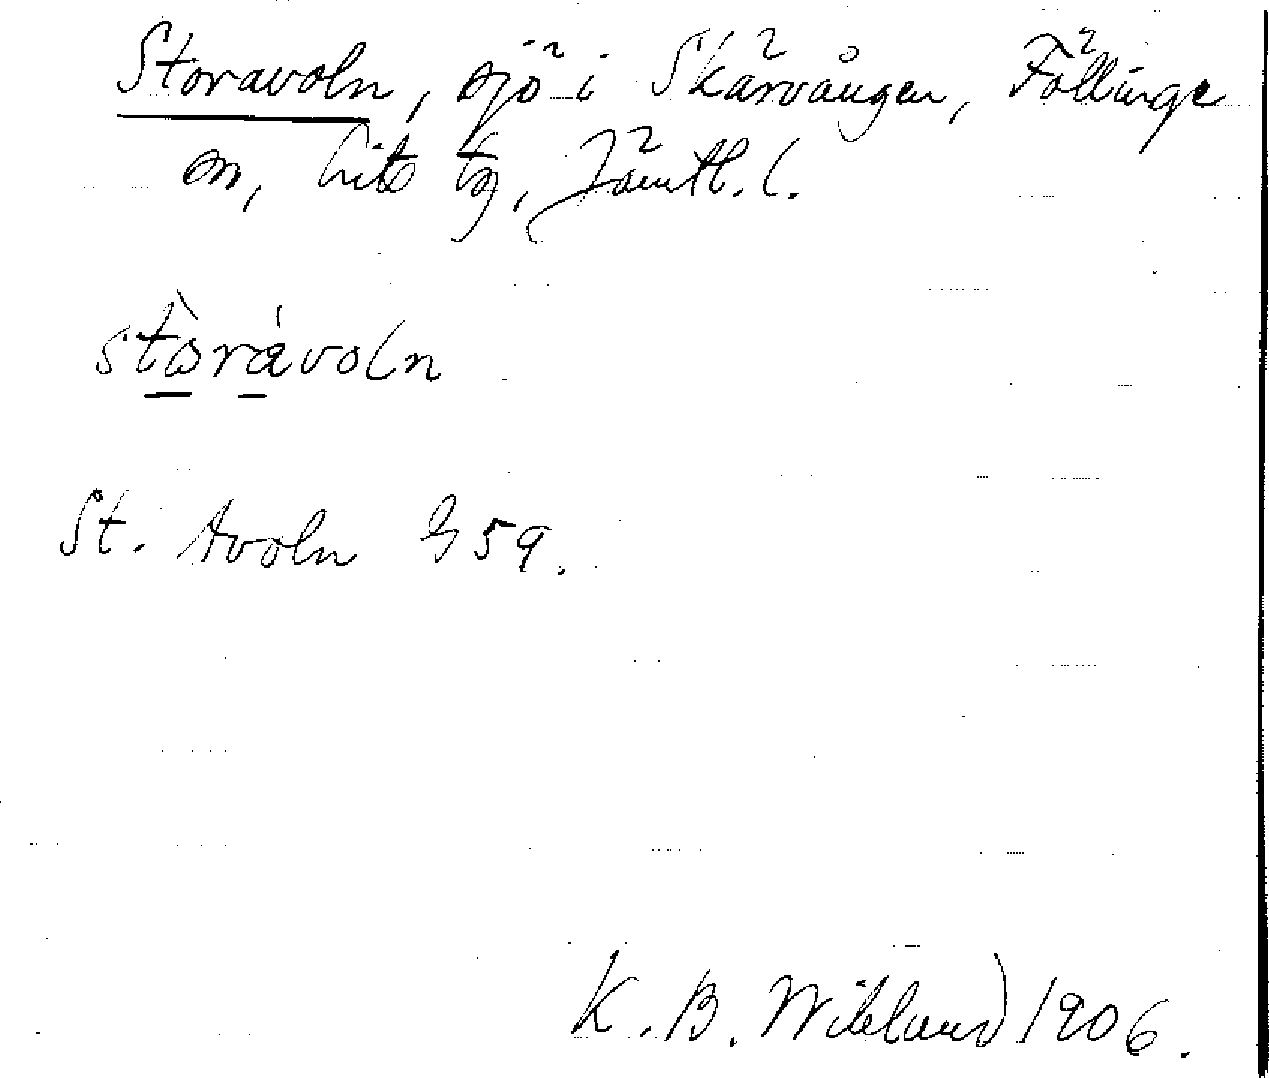 Storavoln, sjö i Skärvången, Föllinge
sn, Lits tg, Jämtl. l.
stòrávoln
St. Avoln G 59.
K. B. Wiklund 1906.